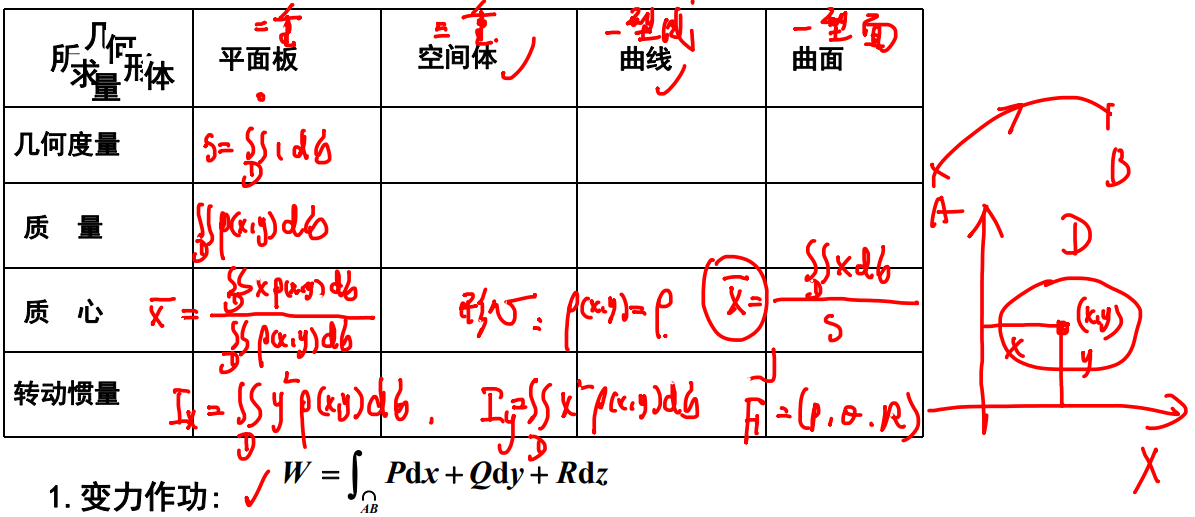 =重 三重 一型线 一型面
所求量 几何形体 平面板 空间体 曲线 曲面
几何度量 S=∬_D 1 dσ
质 量 ∬_D ρ(x,y)dσ
质 心 x̄ = ∬_D xρ(x,y)dσ / ∬_D ρ(x,y)dσ 形心: ρ(x,y)=ρ. x̄ = ∬_D xdσ / S
转动惯量 I_x = ∬_D y²ρ(x,y)dσ, I_y=∬_D x²ρ(x,y)dσ F=(P,Q,R)
A B
D
(x,y)
x y
X
1.变力作功: W = ∫_{⌒AB} Pdx + Qdy + Rdz